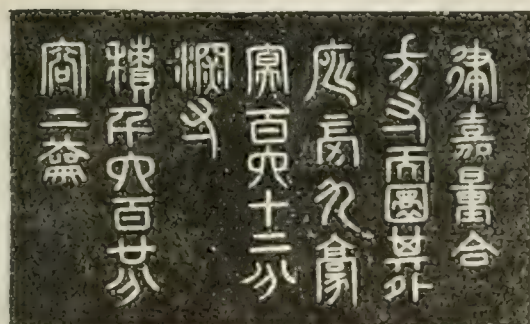 律嘉量合
方寸而圜其外
庣旁九豪
冥百六十二分
深寸
積千六百廿分
容二龠